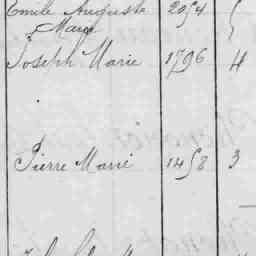 Emile Auguste 2054
Marie
Joseph Marie 1796 4
Pierre Marie 1458 3